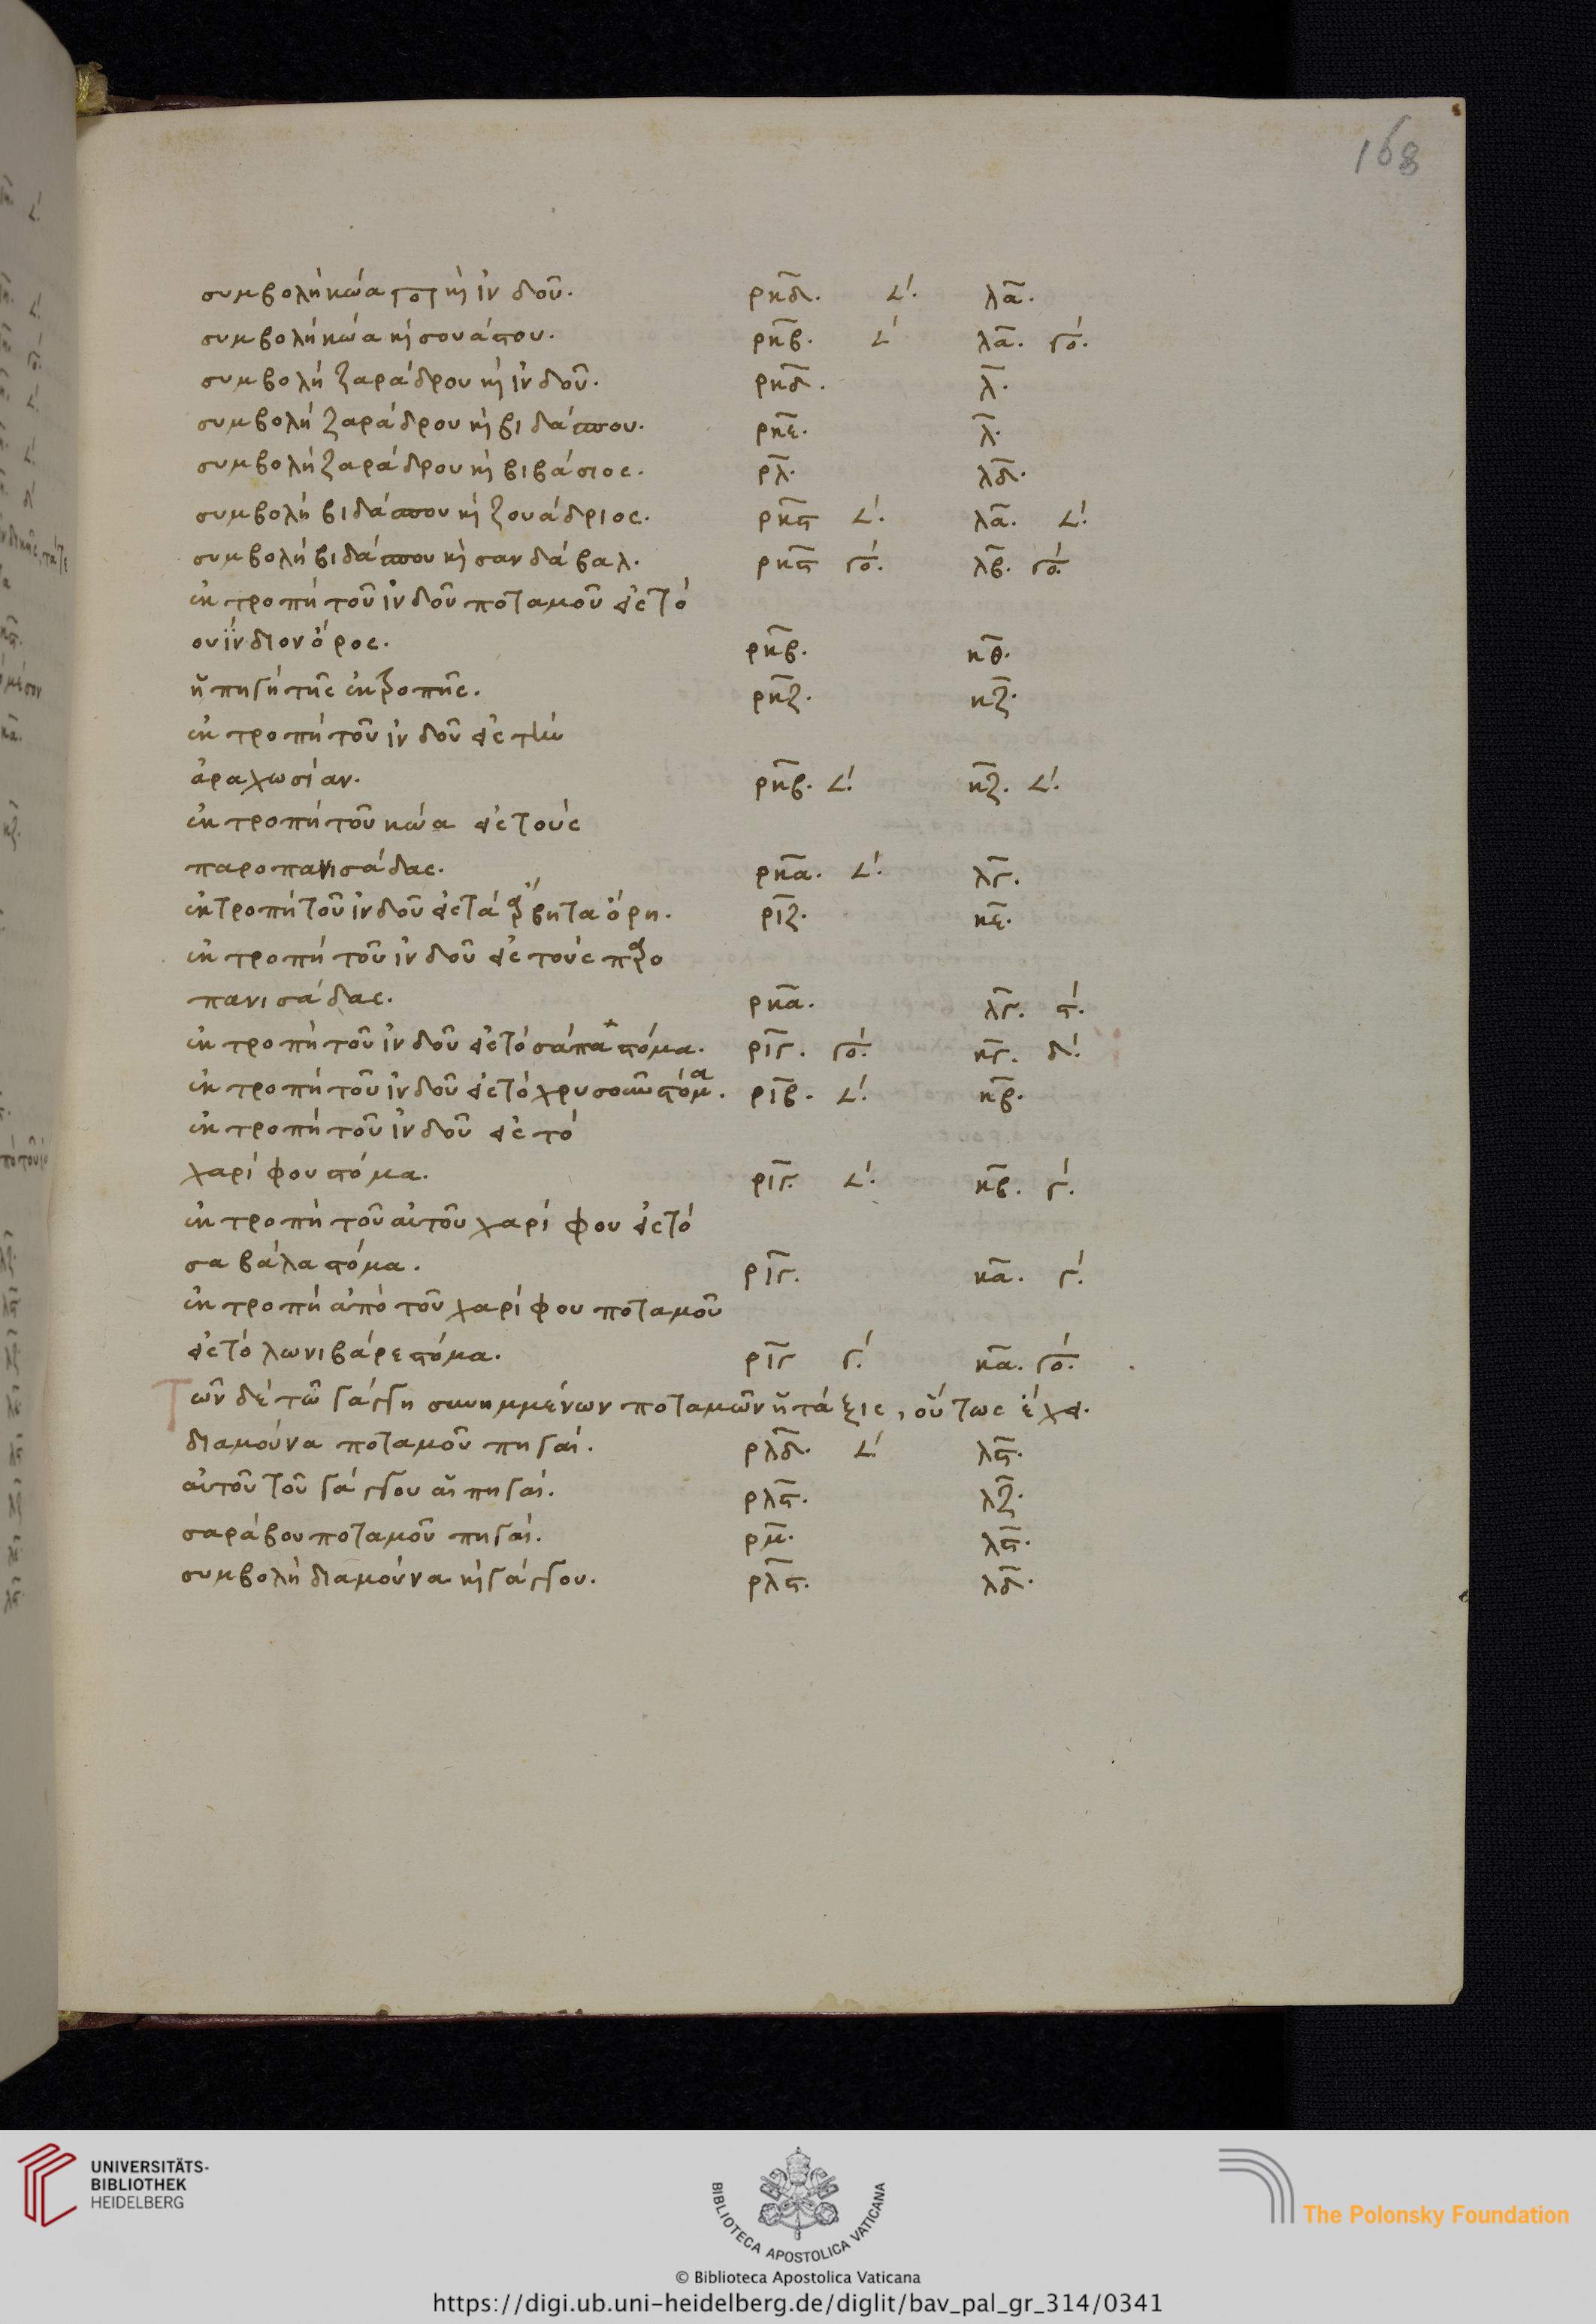 168
συμβολὴ κώα ποτ καὶ ἰνδοῦ. ρκδ. 𐅵. λα.
συμβολὴ κώα καὶ σουάστου. ρκβ. 𐅵 λα. γο.
συμβολὴ ζαράδρου καὶ ἰνδοῦ. ρκδ. λ.
συμβολὴ ζαράδρου καὶ βιδάσπου. ρκε. λ.
συμβολὴ ζαράδρου καὶ βιβάσιος. ρλ. λδ.
συμβολὴ βιδάσπου καὶ ζουάδριος. ρκϛ 𐅵. λα. 𐅵.
συμβολὴ βιδάσπου καὶ σανδάβαλ. ρκϛ γο. λβ. γο.
ἐκτροπὴ τοῦ ἰνδοῦ ποταμοῦ εἰς τὸ
οὐΐνδιον ὄρος. ρκβ. κθ.
ἡ πηγὴ τῆς ἐκτροπῆς. ρκζ. κζ.
ἐκτροπὴ τοῦ ἰνδοῦ εἰς τὴν
ἀραχωσίαν. ρκβ. 𐅵. κζ. 𐅵.
ἐκτροπὴ τοῦ κώα εἰς τοὺς
παροπανισάδας. ρκα. 𐅵. λγ.
ἐκτροπὴ τοῦ ἰνδοῦ εἰς τὰ ἄρβητα ὄρη. ριζ. κε.
ἐκτροπὴ τοῦ ἰνδοῦ εἰς τοὺς παρο
πανισάδας. ρκα. λγ. ϛ.
ἐκτροπὴ τοῦ ἰνδοῦ εἰς τὸ σάπα στόμα. ριγ. γο. κγ. δ.
ἐκτροπὴ τοῦ ἰνδοῦ εἰς τὸ χρυσοῦν στόμα. ριβ. 𐅵. κβ.
ἐκτροπὴ τοῦ ἰνδοῦ εἰς τὸ
χαρίφου στόμα. ριγ. 𐅵. κβ. γ.
ἐκτροπὴ τοῦ αὐτοῦ χαρίφου εἰς τὸ
σαβάλα στόμα. ριγ. κα. γ.
ἐκτροπὴ ἀπὸ τοῦ χαρίφου ποταμοῦ
εἰς τὸ λωνιβάρε στόμα. ριγ γ. κα. γο.
Τῶν δὲ τῶ γάγγη συνημμένων ποταμῶν ἡ τάξις, οὕτως ἔχει.
διαμούνα ποταμοῦ πηγαί. ρλδ. 𐅵 λϛ.
αὐτοῦ τοῦ γάγγου αἱ πηγαί. ρλϛ. λζ.
σαράβου ποταμοῦ πηγαί. ρμ. λϛ.
συμβολὴ διαμούνα καὶ γάγγου. ρλϛ. λδ.
UNIVERSITÄTS-
BIBLIOTHEK
HEIDELBERG
BIBLIOTECA APOSTOLICA VATICANA
The Polonsky Foundation
© Biblioteca Apostolica Vaticana
https://digi.ub.uni-heidelberg.de/diglit/bav_pal_gr_314/0341